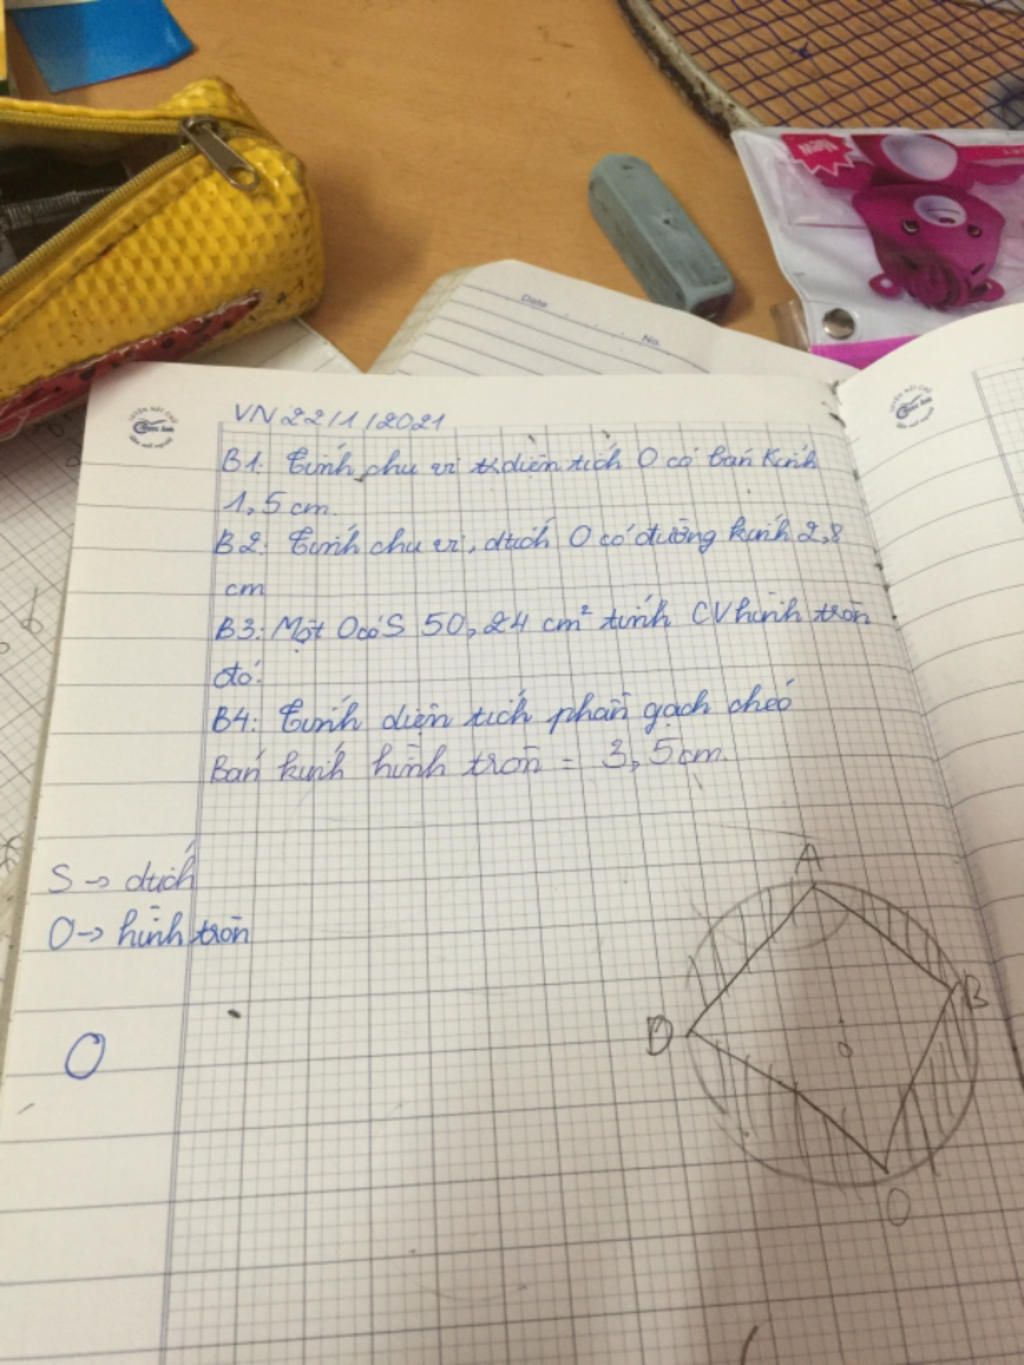 New
Date
No.
VN 22/1/2021
B1: Tính chu vi diện tích O có bán kính
1,5 cm.
B2: Tính chu vi, dtích O có đường kính 2,8
cm
B3: Một O có S 50,24 cm² tính CV hình tròn
đó:
B4: Tính diện tích phần gạch chéo
Bán kính hình tròn = 3,5cm.
S -> dtích
O -> hình tròn
O
A
B
D
o
C